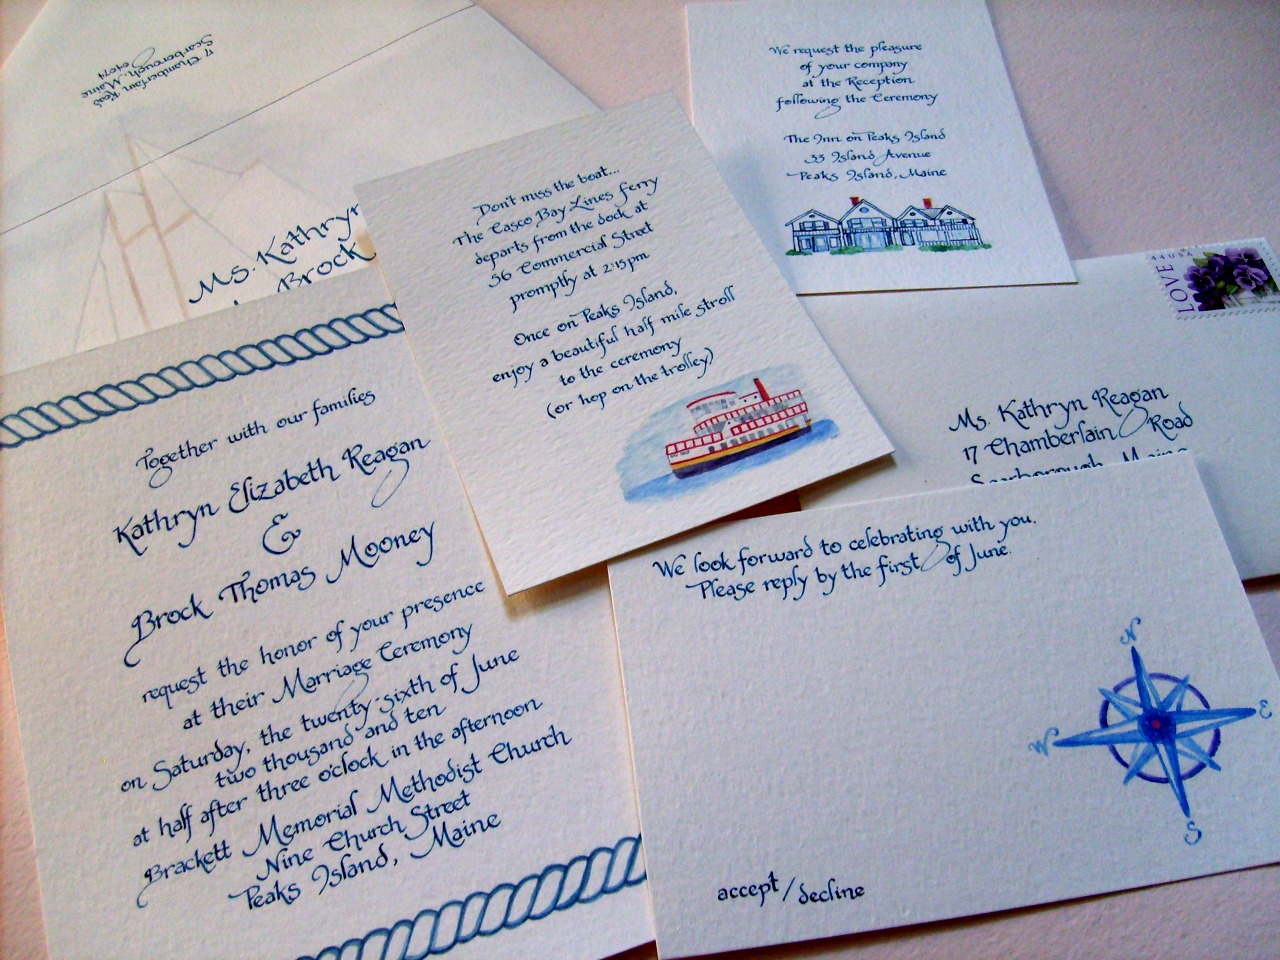 17 Chamberlain Road
Scarborough, Maine
04074
Ms. Kathryn
Brock
Together with our families
Kathryn Elizabeth Reagan
&
Brock Thomas Mooney
request the honor of your presence
at their Marriage Ceremony
on Saturday, the twenty-sixth of June
two thousand and ten
at half after three o'clock in the afternoon
Brackett Memorial Methodist Church
Nine Church Street
Peaks Island, Maine
Don't miss the boat...
The Casco Bay Lines Ferry
departs from the dock at
56 Commercial Street
promptly at 2:15pm
Once on Peaks Island,
enjoy a beautiful half mile stroll
to the ceremony
(or hop on the trolley)
We request the pleasure
of your company
at the Reception
following the Ceremony
The Inn on Peaks Island
33 Island Avenue
Peaks Island, Maine
44 USA
LOVE
Ms. Kathryn Reagan
17 Chamberlain Road
Scarborough, Maine
We look forward to celebrating with you.
Please reply by the first of June.
N
W E
S
accept/decline